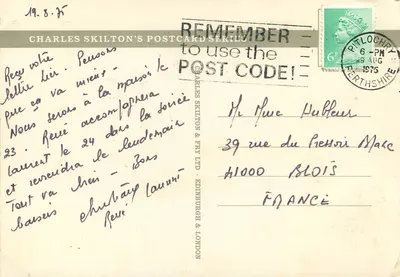 19.8.75
CHARLES SKILTON'S POSTCARD SERIES
Reçu votre
lettre hier. Pensons
que ça va mieux -
Nous serons à la maison le
23. René accompagnera
Laurent le 24 dans la soirée
et reviendra le lendemain
Tout va bien - Bons
baisers
Christiane Laurent
René
REMEMBER
to use the
POST CODE!
6P
PITLOCHRY
6-PM
19 AUG
1975
PERTHSHIRE
CHARLES SKILTON & FRY LTD · EDINBURGH & LONDON
M. Mme
39 rue du Pressoir Marc
41000 BLOIS
FRANCE